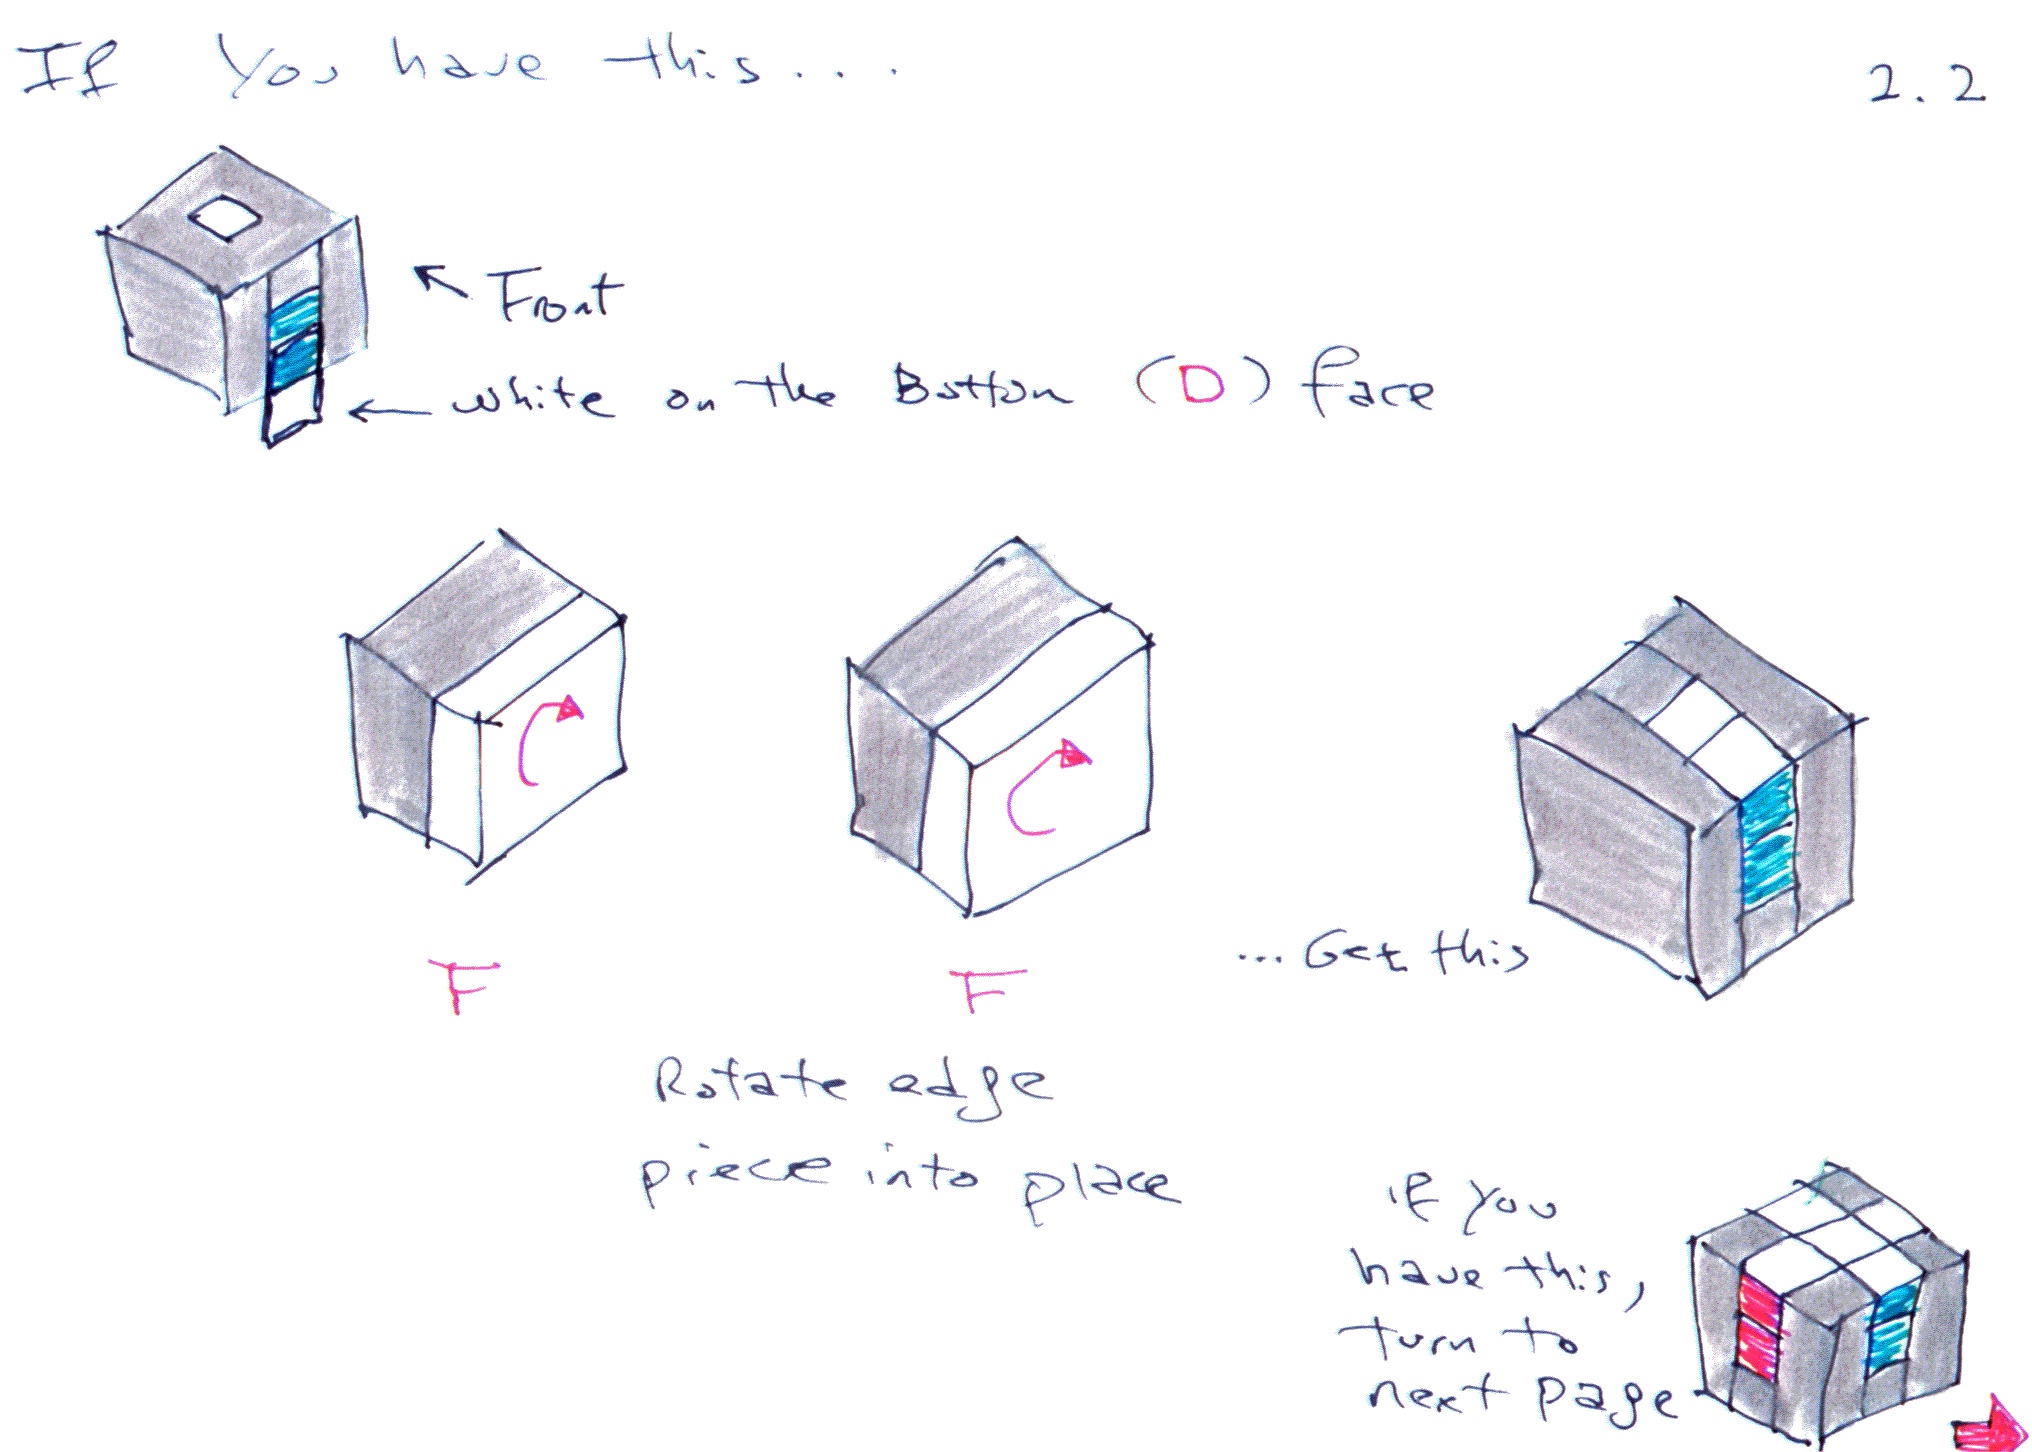 If you have this....
2.2
← Front
← white on the Bottom (D) face
F
F
...Get this
Rotate edge
piece into place
if you
have this,
turn to
next page